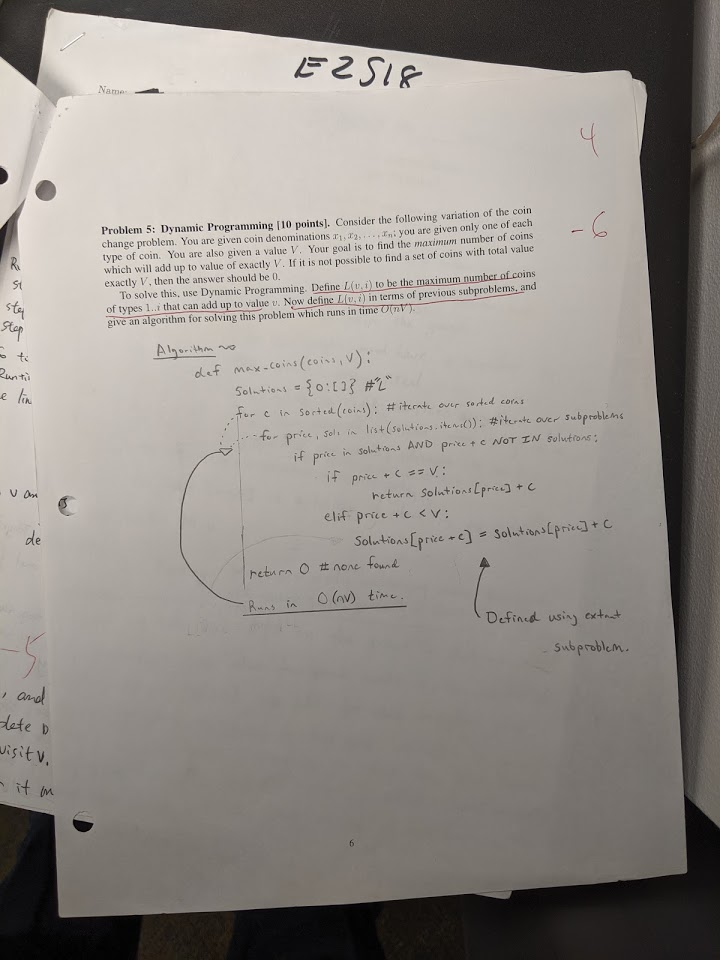 E2518
Name:
4
-6
Problem 5: Dynamic Programming [10 points]. Consider the following variation of the coin
change problem. You are given coin denominations x1, x2, . . . , xn; you are given only one of each
type of coin. You are also given a value V. Your goal is to find the maximum number of coins
which will add up to value of exactly V. If it is not possible to find a set of coins with total value
exactly V, then the answer should be 0.
To solve this, use Dynamic Programming. Define L(v, i) to be the maximum number of coins
of types 1..i that can add up to value v. Now define L(v, i) in terms of previous subproblems, and
give an algorithm for solving this problem which runs in time O(nV).
Algorithm
def max-coins(coins, V):
Solutions = {0:[]} #"L"
for c in sorted(coins): #iterate over sorted coins
for price, sols in list(solutions.items()): #iterate over subproblems
if price in solutions AND price + c NOT IN solutions:
if price + c == V:
return Solutions[price] + c
elif price + c < V:
Solutions[price + c] = Solutions[price] + c
return 0 # none found
Runs in O(nV) time.
Defined using extant
subproblem.
6
step
step
de
-5
, and
visit v.